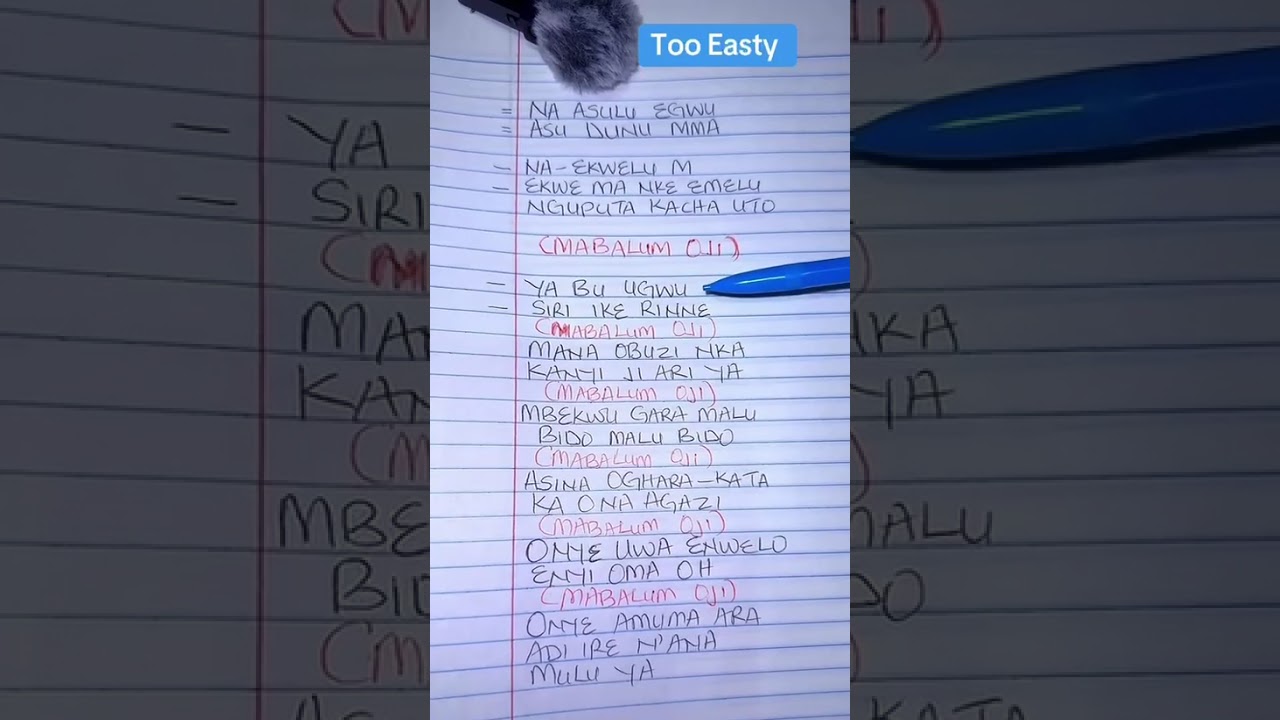 Too Easty
= NA ASULU EGWU
= ASU DUNU MMA
- NA-EKWELU M
- EKWE MA NKE EMELU
NGUPUTA KACHA UTO
(MABALUM OJI)
- YA BU UGWU
- SIRI IKE RINNE
(MABALUM OJI)
MANA OBUZI NKA
KANYI JI ARI YA
(MABALUM OJI)
MBEKWU GARA MALU
BIDO MALU BIDO
(MABALUM OJI)
ASINA OGHARA-KATA
KA ONA AGAZI
(MABALUM OJI)
ONYE UWA ENWELO
ENYI OMA OH
(MABALUM OJI)
ONYE AMUMA ARA
ADI IRE N'ANA
MULU YA